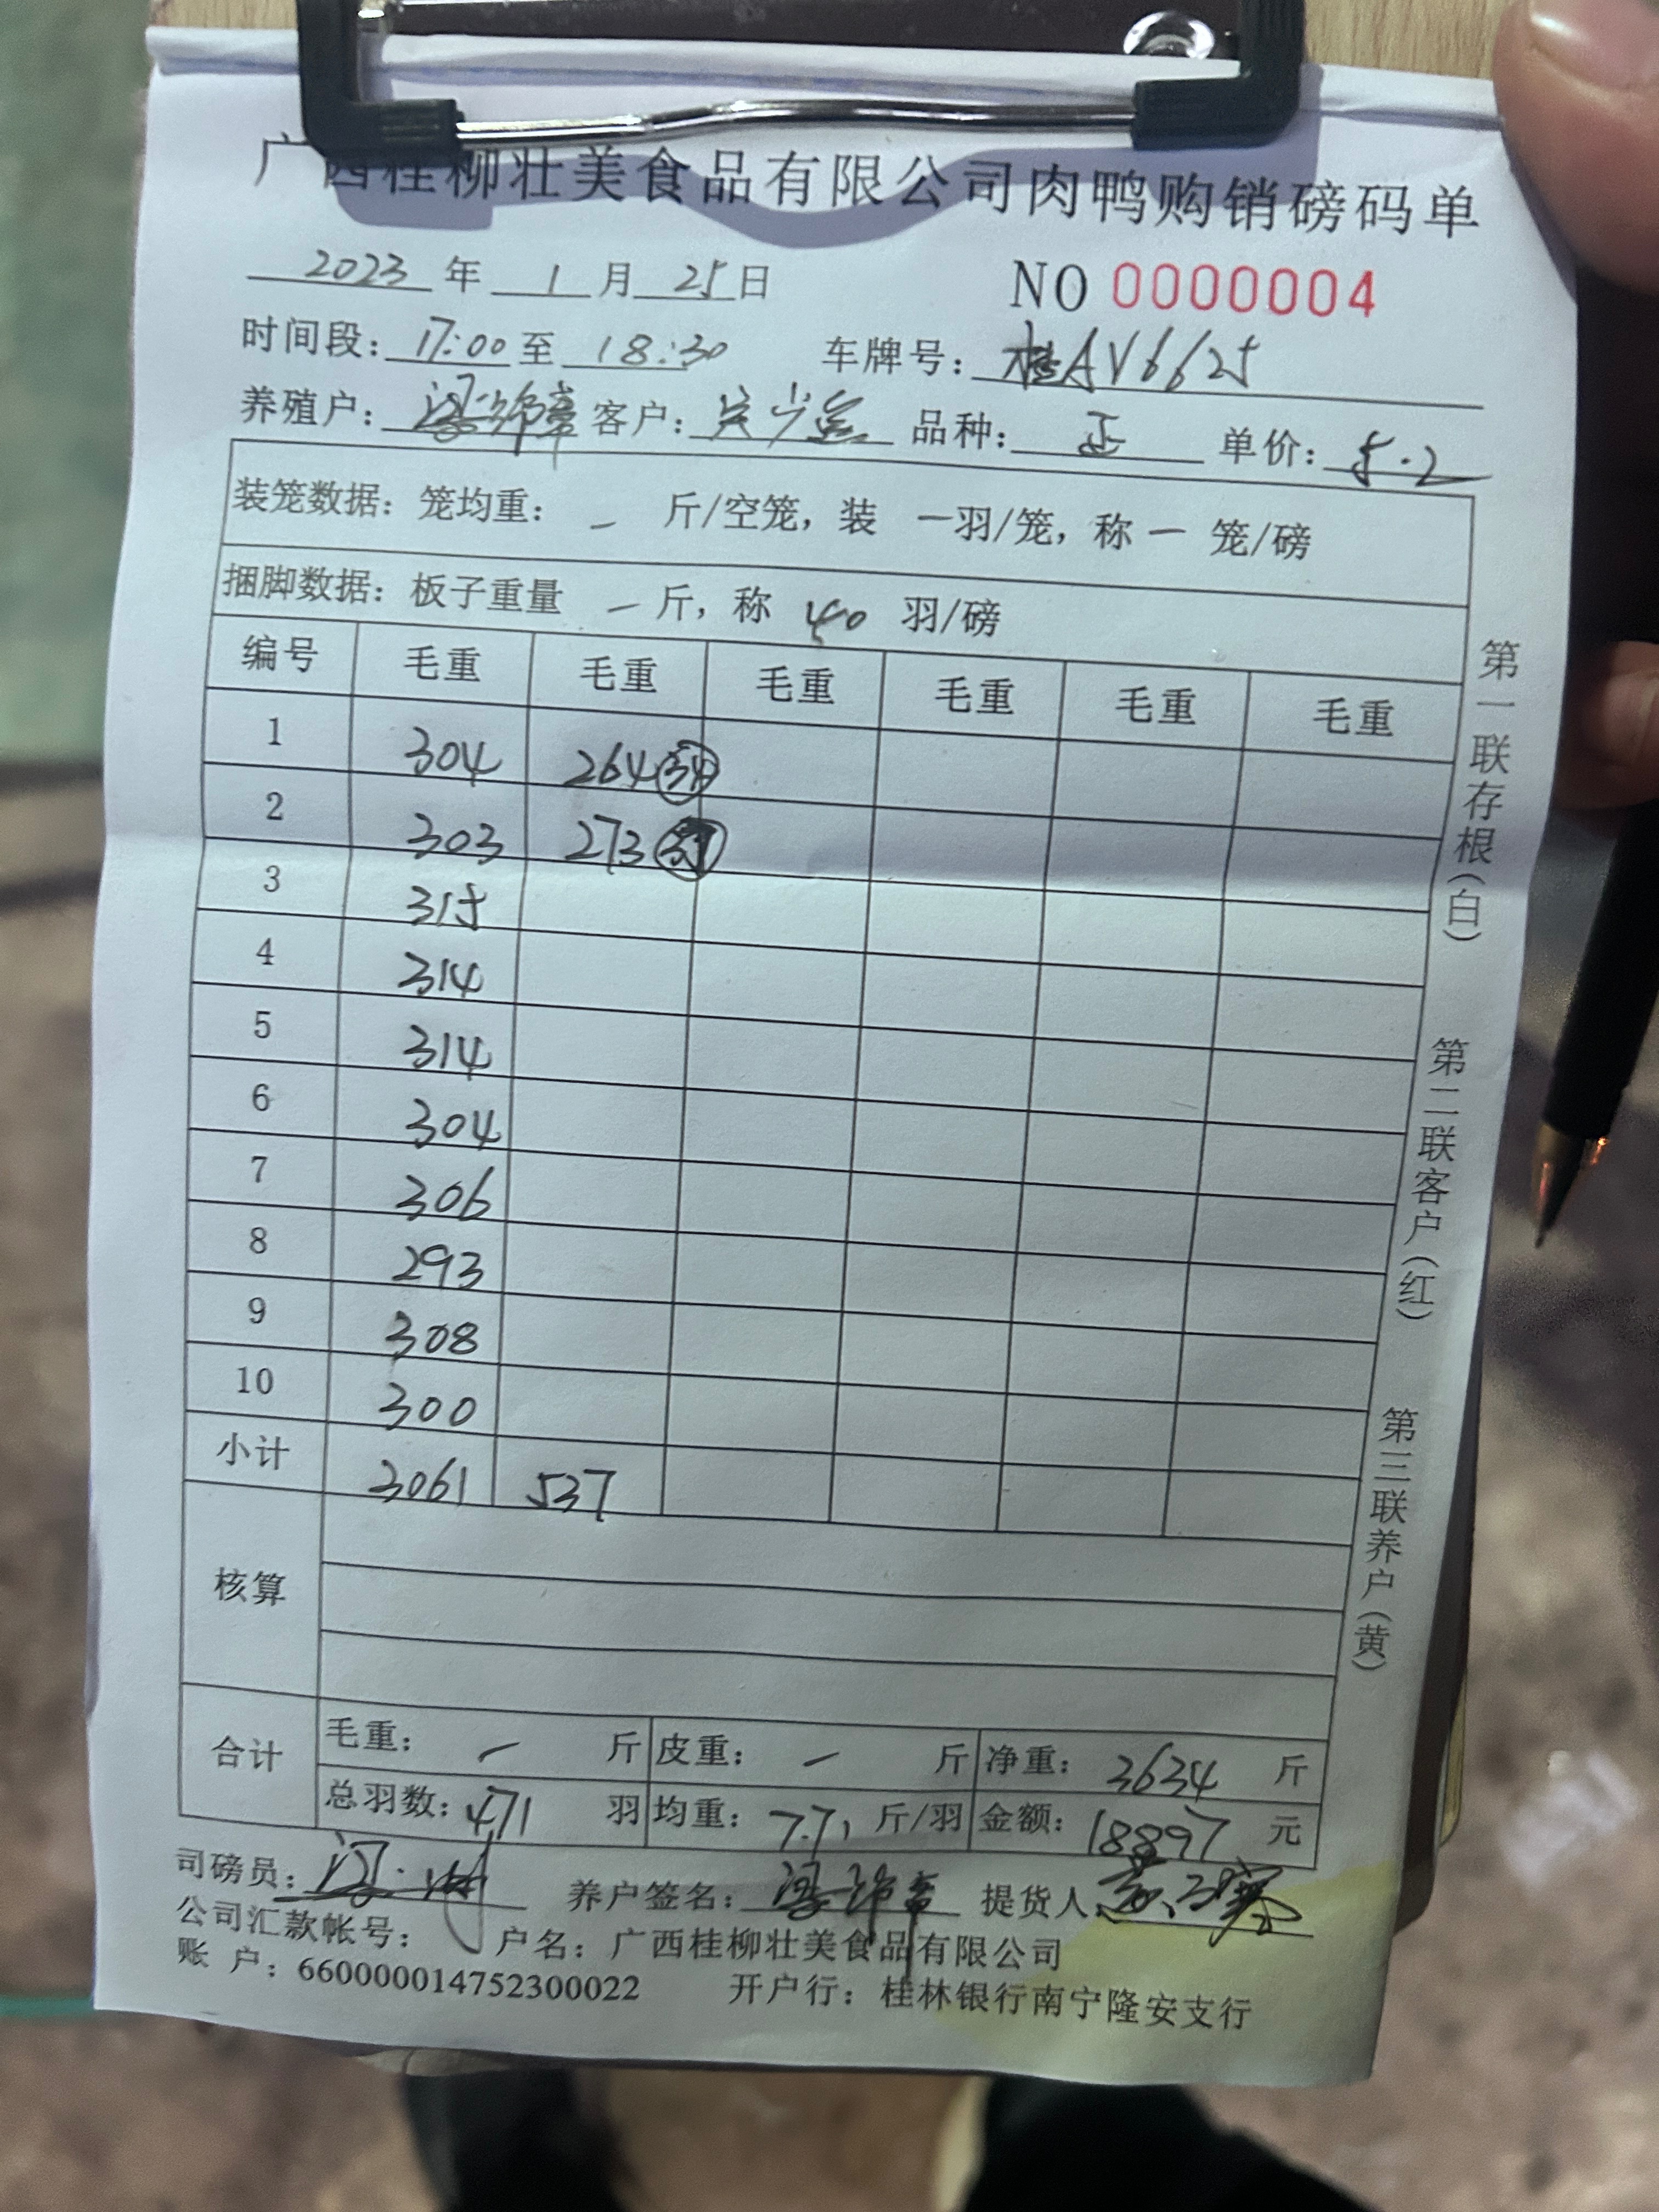 广西桂柳壮美食品有限公司肉鸭购销磅码单
2023年1月25日 NO 0000004
时间段：17:00至18:30 车牌号：桂AV6625
养殖户： 客户： 品种：正 单价：5.2
装笼数据：笼均重： - 斤/空笼，装 一羽/笼，称 一 笼/磅
捆脚数据：板子重量 一 斤，称 40 羽/磅
编号 毛重 毛重 毛重 毛重 毛重 毛重
1 304 264 34
2 303 273
3 315
4 314
5 314
6 304
7 306
8 293
9 308
10 300
小计 3061 537
核算
合计 毛重： 一 斤 皮重： 一 斤 净重：3634 斤
总羽数：471 羽 均重：7.71 斤/羽 金额：18897 元
司磅员： 养户签名： 提货人：
公司汇款帐号： 户名：广西桂柳壮美食品有限公司
账 户：660000014752300022 开户行：桂林银行南宁隆安支行
第一联存根（白）
第二联客户（红）
第三联养户（黄）